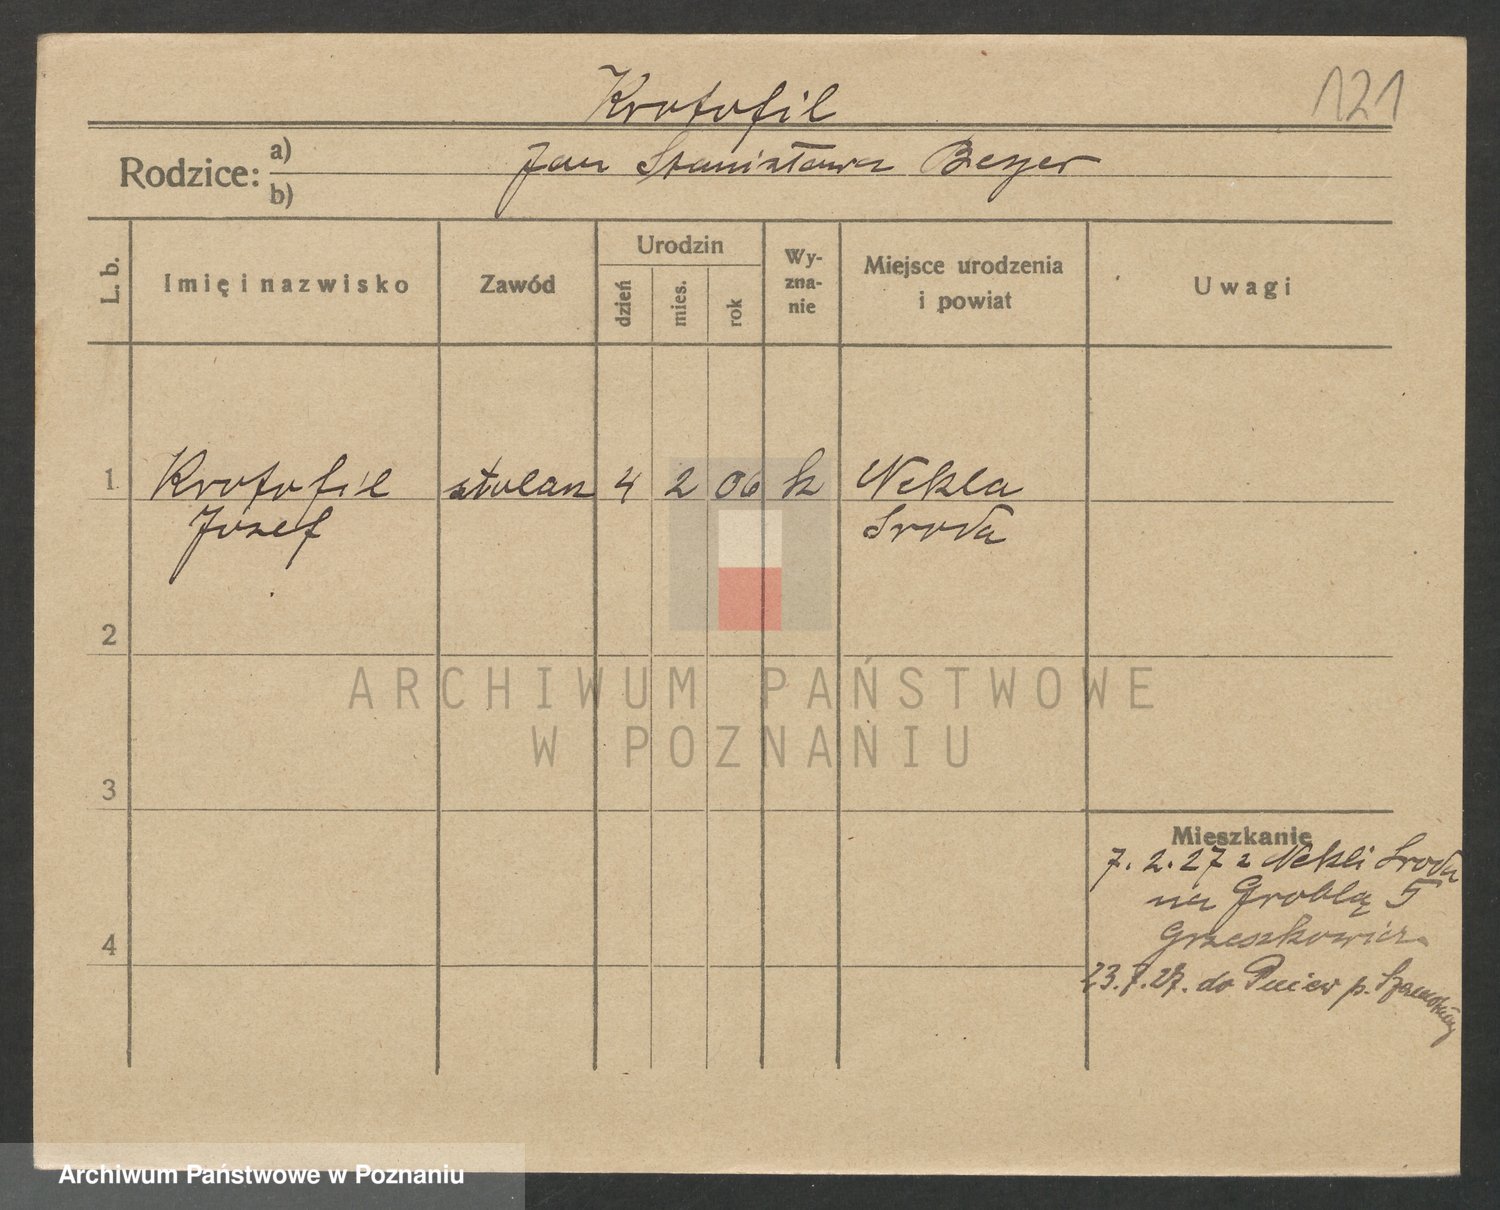 Krotofil
121
Rodzice: a) Jan Stanisława Beyer
b)
L. b.
Imię i nazwisko
Zawód
Urodzin
dzień
mies.
rok
Wy-
zna-
nie
Miejsce urodzenia
i powiat
Uwagi
1 Krotofil stolarz 4 2 06 k Nekla
Józef Sroda
2
ARCHIWUM PAŃSTWOWE
W POZNANIU
3
Mieszkanie
7. 2. 27 z Nekli Sroda
na Groblą 5
4
23. 7. 27. do Pniew p. Szamotuły
Archiwum Państwowe w Poznaniu